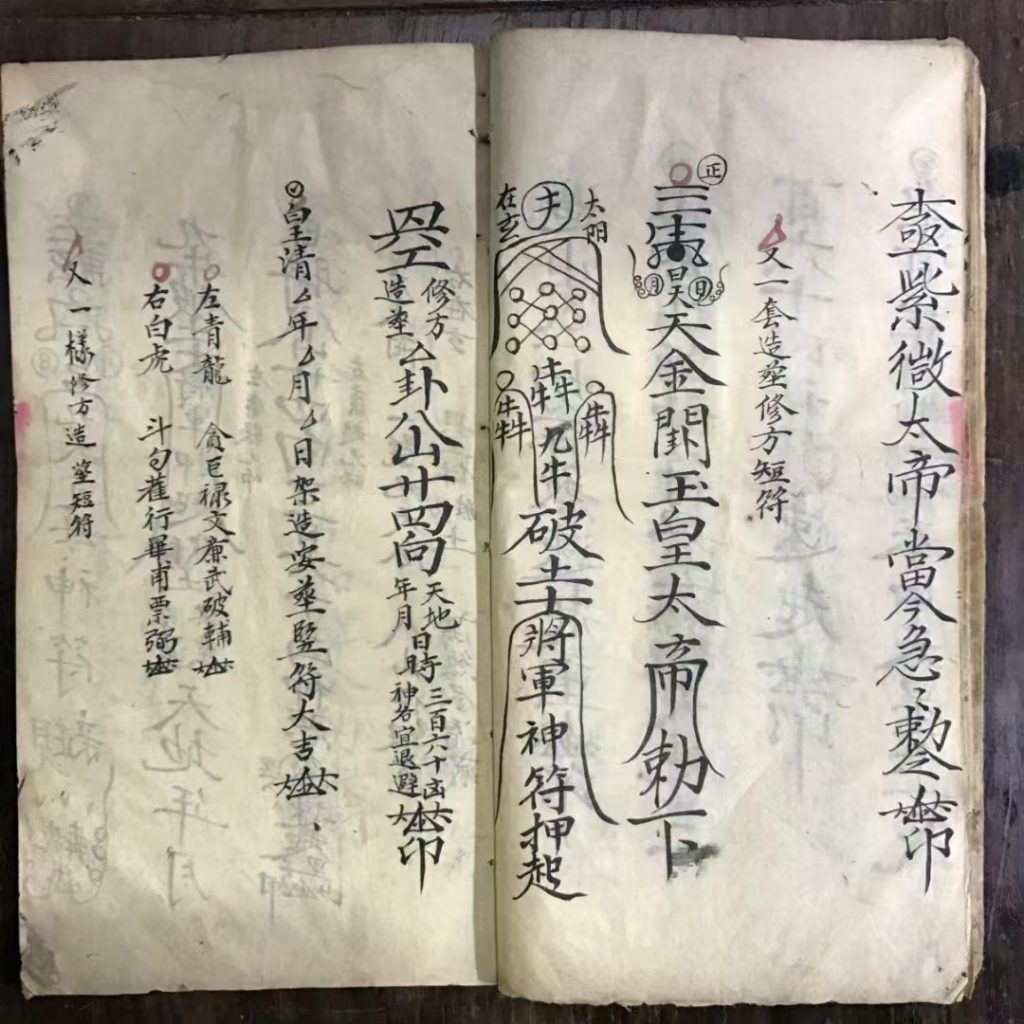 紫微太帝當今急〻勅令 印
又一套造塋修方短符
正
三 天金闕玉皇太帝勅下
月 昊天 日
太陽
在玄
犇 九牛 破土 將軍神符押起
犇
犇
修方
造塋
厶卦八山廿四向
天地
年月
日時
三百六十凶
神各宜退避
印
皇清厶年厶月厶日架造安塋竪符大吉
左青龍 貪巨祿文廉武破輔
右白虎 斗勺雚行畢甫票弼
又一樣修方造塋短符